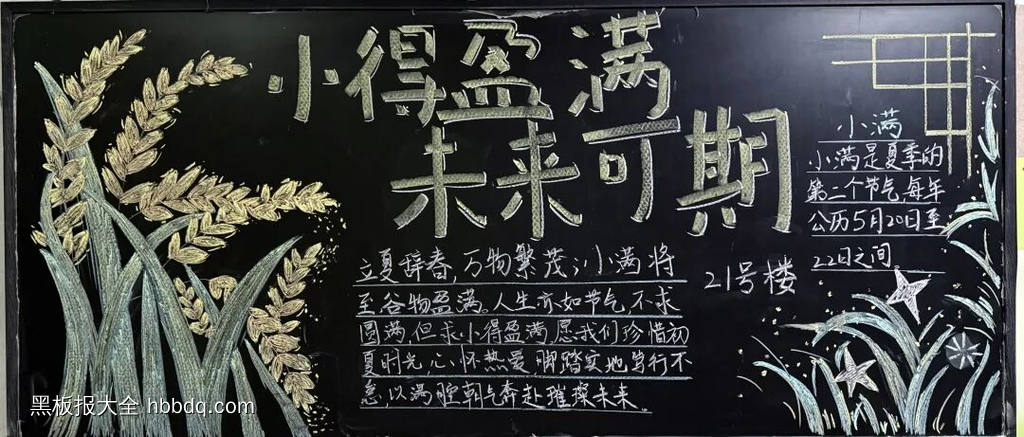 小得盈满
未来可期
立夏辞春,万物繁茂;小满将
至谷物盈满。人生亦如节气,不求
圆满,但求小得盈满,愿我们珍惜初
夏时光,心怀热爱,脚踏实地笃行不
怠,以满腔朝气奔赴璀璨未来。
21号楼
小满
小满是夏季的
第二个节气,每年
公历5月20日至
22日之间
黑板报大全 hbbdq.com